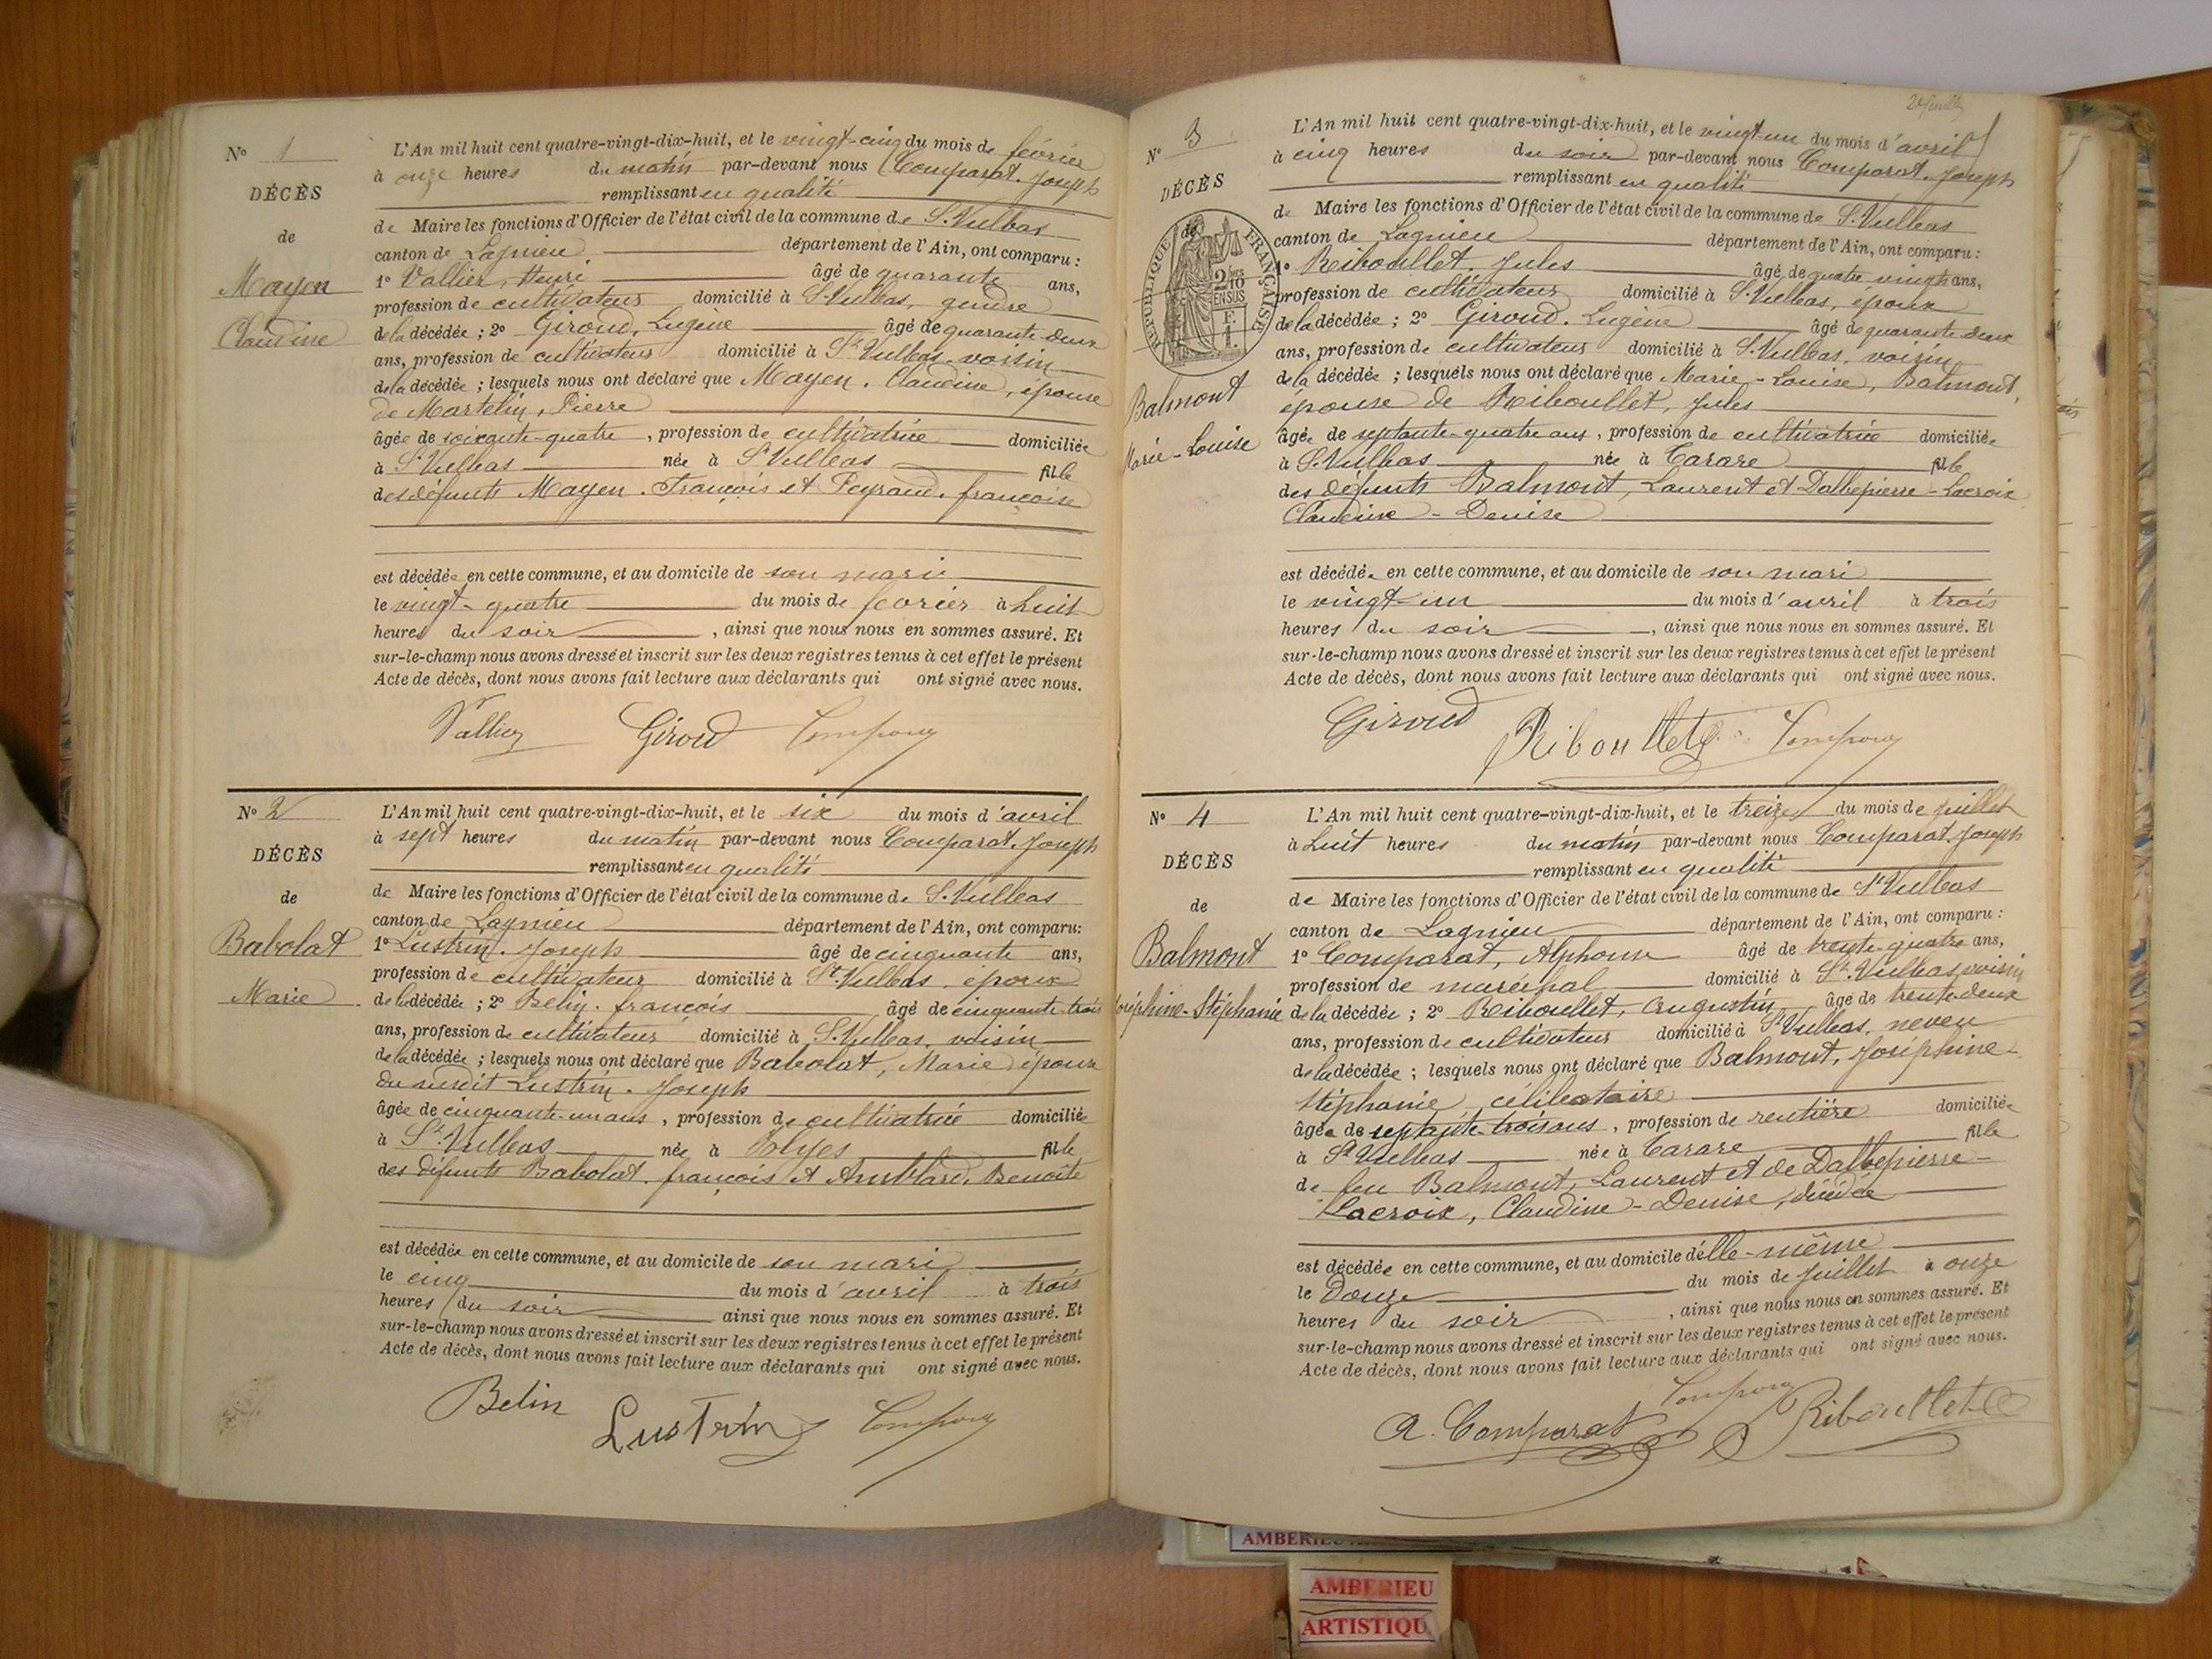 N° 1
DÉCÈS
de
Mayen
Claudine
L'An mil huit cent quatre-vingt-dix-huit, et le vingt-cinq du mois de février
à onze heures du matin par-devant nous Comparat. Joseph
remplissant en qualité
de Maire les fonctions d'Officier de l'état civil de la commune de St. Vulbas
canton de Lagnieu département de l'Ain, ont comparu :
1° Vallier, Henri âgé de quarante ans,
profession de cultivateur domicilié à St. Vulbas, gendre
de la décédée ; 2° Giroud, Eugène âgé de quarante deux
ans, profession de cultivateur domicilié à St. Vulbas, voisin
de la décédée ; lesquels nous ont déclaré que Mayen. Claudine, épouse
de Martelin, Pierre
âgée de soixante-quatre, profession de cultivatrice domiciliée
à St. Vulbas née à St. Vulbas fille
des défunts Mayen. François et Peyraud. françoise
est décédée en cette commune, et au domicile de son mari
le vingt-quatre du mois de février à huit
heures du soir, ainsi que nous nous en sommes assuré. Et
sur-le-champ nous avons dressé et inscrit sur les deux registres tenus à cet effet le présent
Acte de décès, dont nous avons fait lecture aux déclarants qui ont signé avec nous.
Vallier Giroud
N° 2
DÉCÈS
de
Babolat
Marie
L'An mil huit cent quatre-vingt-dix-huit, et le six du mois d'avril
à sept heures du matin par-devant nous Comparat. Joseph
remplissant en qualité
de Maire les fonctions d'Officier de l'état civil de la commune de St. Vulbas
canton de Lagnieu département de l'Ain, ont comparu:
1° Lustrin. Joseph âgé de cinquante ans,
profession de cultivateur domicilié à St. Vulbas, époux
de la décédée ; 2° Belin. françois âgé de cinquante-trois
ans, profession de cultivateur domicilié à St. Vulbas, voisin
de la décédée ; lesquels nous ont déclaré que Babolat, Marie épouse
du susdit Lustrin. Joseph
âgée de cinquante-un ans, profession de cultivatrice domiciliée
à St. Vulbas née à Blyes fille
des défunts Babolat. françois et Amblard, Benoîte
est décédée en cette commune, et au domicile de son mari
le cinq du mois d'avril à trois
heures du soir ainsi que nous nous en sommes assuré. Et
sur-le-champ nous avons dressé et inscrit sur les deux registres tenus à cet effet le présent
Acte de décès, dont nous avons fait lecture aux déclarants qui ont signé avec nous.
Belin Lustrin
N° 3
DÉCÈS
de
RÉPUBLIQUE FRANÇAISE
2/10
EN SUS
Balmont
Marie-Louise
L'An mil huit cent quatre-vingt-dix-huit, et le vingt-un du mois d'avril
à cinq heures du soir par-devant nous Comparat. Joseph
remplissant en qualité
de Maire les fonctions d'Officier de l'état civil de la commune de St. Vulbas
canton de Lagnieu département de l'Ain, ont comparu :
1° Riboullet. Jules âgé de quatre vingts ans,
profession de cultivateur domicilié à St. Vulbas, époux
de la décédée ; 2° Giroud. Eugène âgé de quarante deux
ans, profession de cultivateur domicilié à St. Vulbas, voisin
de la décédée ; lesquels nous ont déclaré que Marie-Louise, Balmont,
épouse de Riboullet, Jules
âgée de septante-quatre ans, profession de cultivatrice domiciliée
à St. Vulbas née à Tarare fille
des défunts Balmont, Laurent et Dalbepierre-Lacroix
Claudine-Denise
est décédée en cette commune, et au domicile de son mari
le vingt-un du mois d'avril à trois
heures du soir, ainsi que nous nous en sommes assuré. Et
sur-le-champ nous avons dressé et inscrit sur les deux registres tenus à cet effet le présent
Acte de décès, dont nous avons fait lecture aux déclarants qui ont signé avec nous.
Giroud Riboullet
N° 4
DÉCÈS
de
Balmont
Joséphine-Stéphanie
L'An mil huit cent quatre-vingt-dix-huit, et le treize du mois de juillet
à huit heures du matin par-devant nous Comparat. Joseph
remplissant en qualité
de Maire les fonctions d'Officier de l'état civil de la commune de St Vulbas
canton de Lagnieu département de l'Ain, ont comparu :
1° Comparat, Alphonse âgé de trente-quatre ans,
profession de maréchal domicilié à St. Vulbas, voisin
de la décédée ; 2° Riboullet, Augustin âgé de trente-deux
ans, profession de cultivateur domicilié à St Vulbas, neveu
de la décédée ; lesquels nous ont déclaré que Balmont, Joséphine-
Stéphanie, célibataire
âgée de septante-trois ans, profession de rentière domiciliée
à St Vulbas née à Tarare fille
de feu Balmont, Laurent et de Dalbepierre-
Lacroix, Claudine-Denise, décédée
est décédée en cette commune, et au domicile d'elle-même
le douze du mois de juillet à onze
heures du soir, ainsi que nous nous en sommes assuré. Et
sur-le-champ nous avons dressé et inscrit sur les deux registres tenus à cet effet le présent
Acte de décès, dont nous avons fait lecture aux déclarants qui ont signé avec nous.
A. Comparat Riboullet
AMBERIEU
AMBERIEU
ARTISTIQU